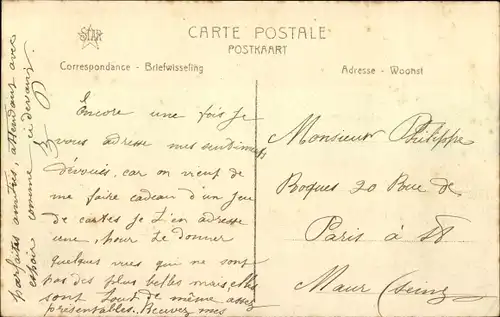 STAR
CARTE POSTALE
POSTKAART
Correspondance - Briefwisseling
Adresse - Woonst
Encore une fois je
vous adresse mes sentiments
dévoués, car on vient de
me faire cadeau d'un jeu
de cartes je t'en adresse
une, pour te donner
quelques vues qui ne sont
pas des plus belles mais, elles
sont tout de même assez
présentables.. Recevez mes
parfaites amitiés, attendant avec
espoir comme ci-dessus
Monsieur Philippe
Boques 20 Rue de
Paris à St
Maur (Seine)